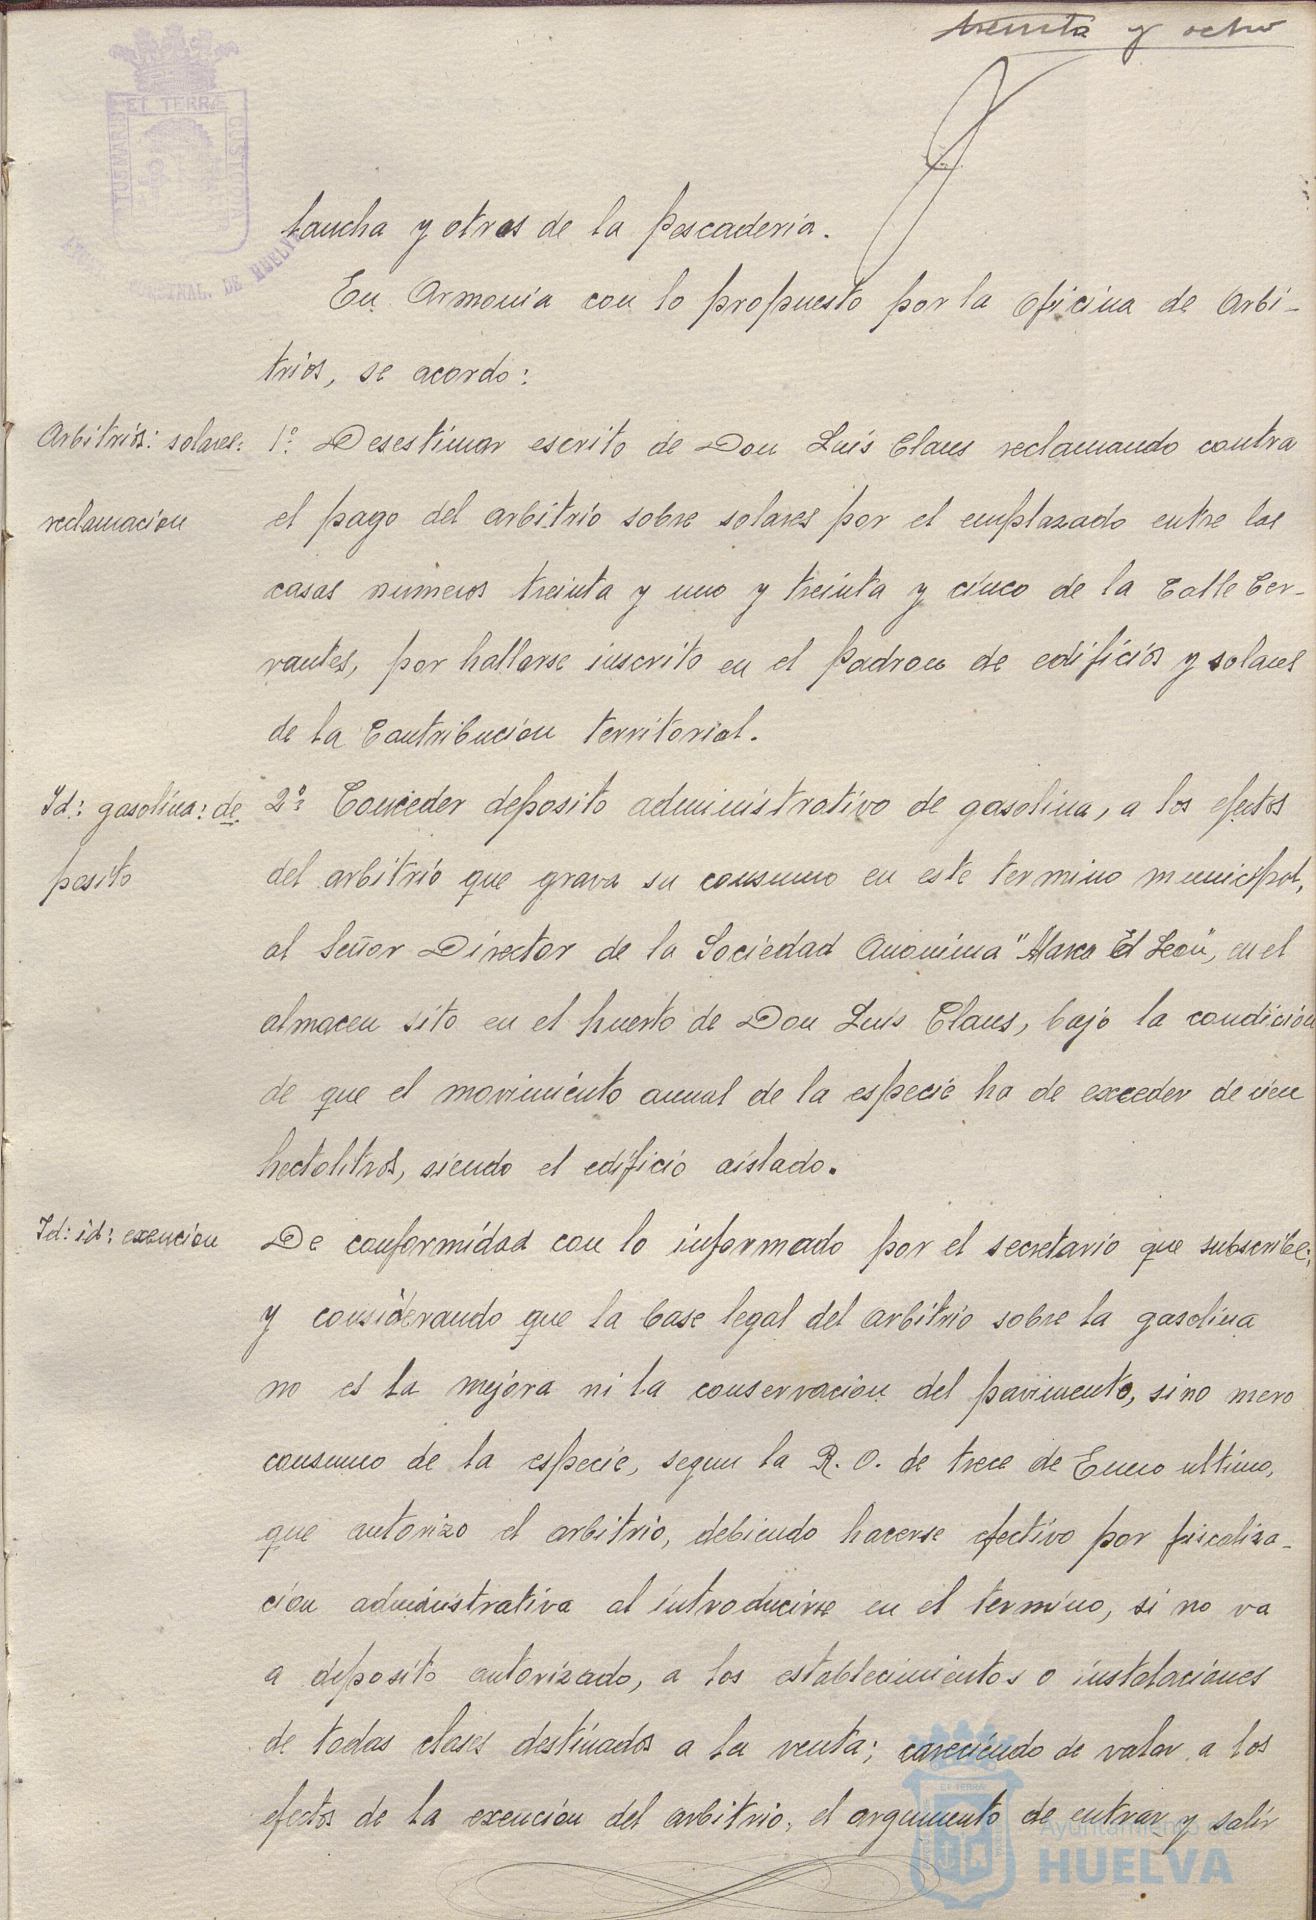 treinta y ocho
ET TERRÆ
laucha y otros de la pescaderia.
En Armonia con lo propuesto por la oficina de Arbi-
trios, se acordo:
Arbitrios: solares:
reclamacion
1º Desestimar escrito de Don Luis Claus reclamando contra
el pago del arbitrio sobre solares por el emplazado entre las
casas numeros treinta y uno y treinta y cinco de la Calle Cer-
vantes, por hallarse inscrito en el padron de edificios y solares
de la Contribucion territorial.
Id: gasolina: de
posito
2º Conceder deposito administrativo de gasolina, a los efectos
del arbitrio que grava su consumo en este termino municipal,
al Señor Director de la Sociedad Anonima "Marca El Leon", en el
almacen sito en el huerto de Don Luis Claus, bajo la condicion
de que el movimiento anual de la especie ha de exceder de cien
hectolitros, siendo el edificio aislado.
Id: id: exencion
De conformidad con lo informado por el secretario que subscribe;
y considerando que la base legal del arbitrio sobre la gasolina
no es la mejora ni la conservacion del pavimento, sino mero
consumo de la especie, segun la R. O. de trece de Enero ultimo,
que autorizo el arbitrio, debiendo hacerse efectivo por fiscaliza-
cion administrativa al introducirse en el termino, si no va
a deposito autorizado, a los establecimientos o instalaciones
de todas clases destinados a la venta; careciendo de valor a los
efectos de la exencion del arbitrio, el argumento de entrar y salir
Ayuntamiento de
HUELVA